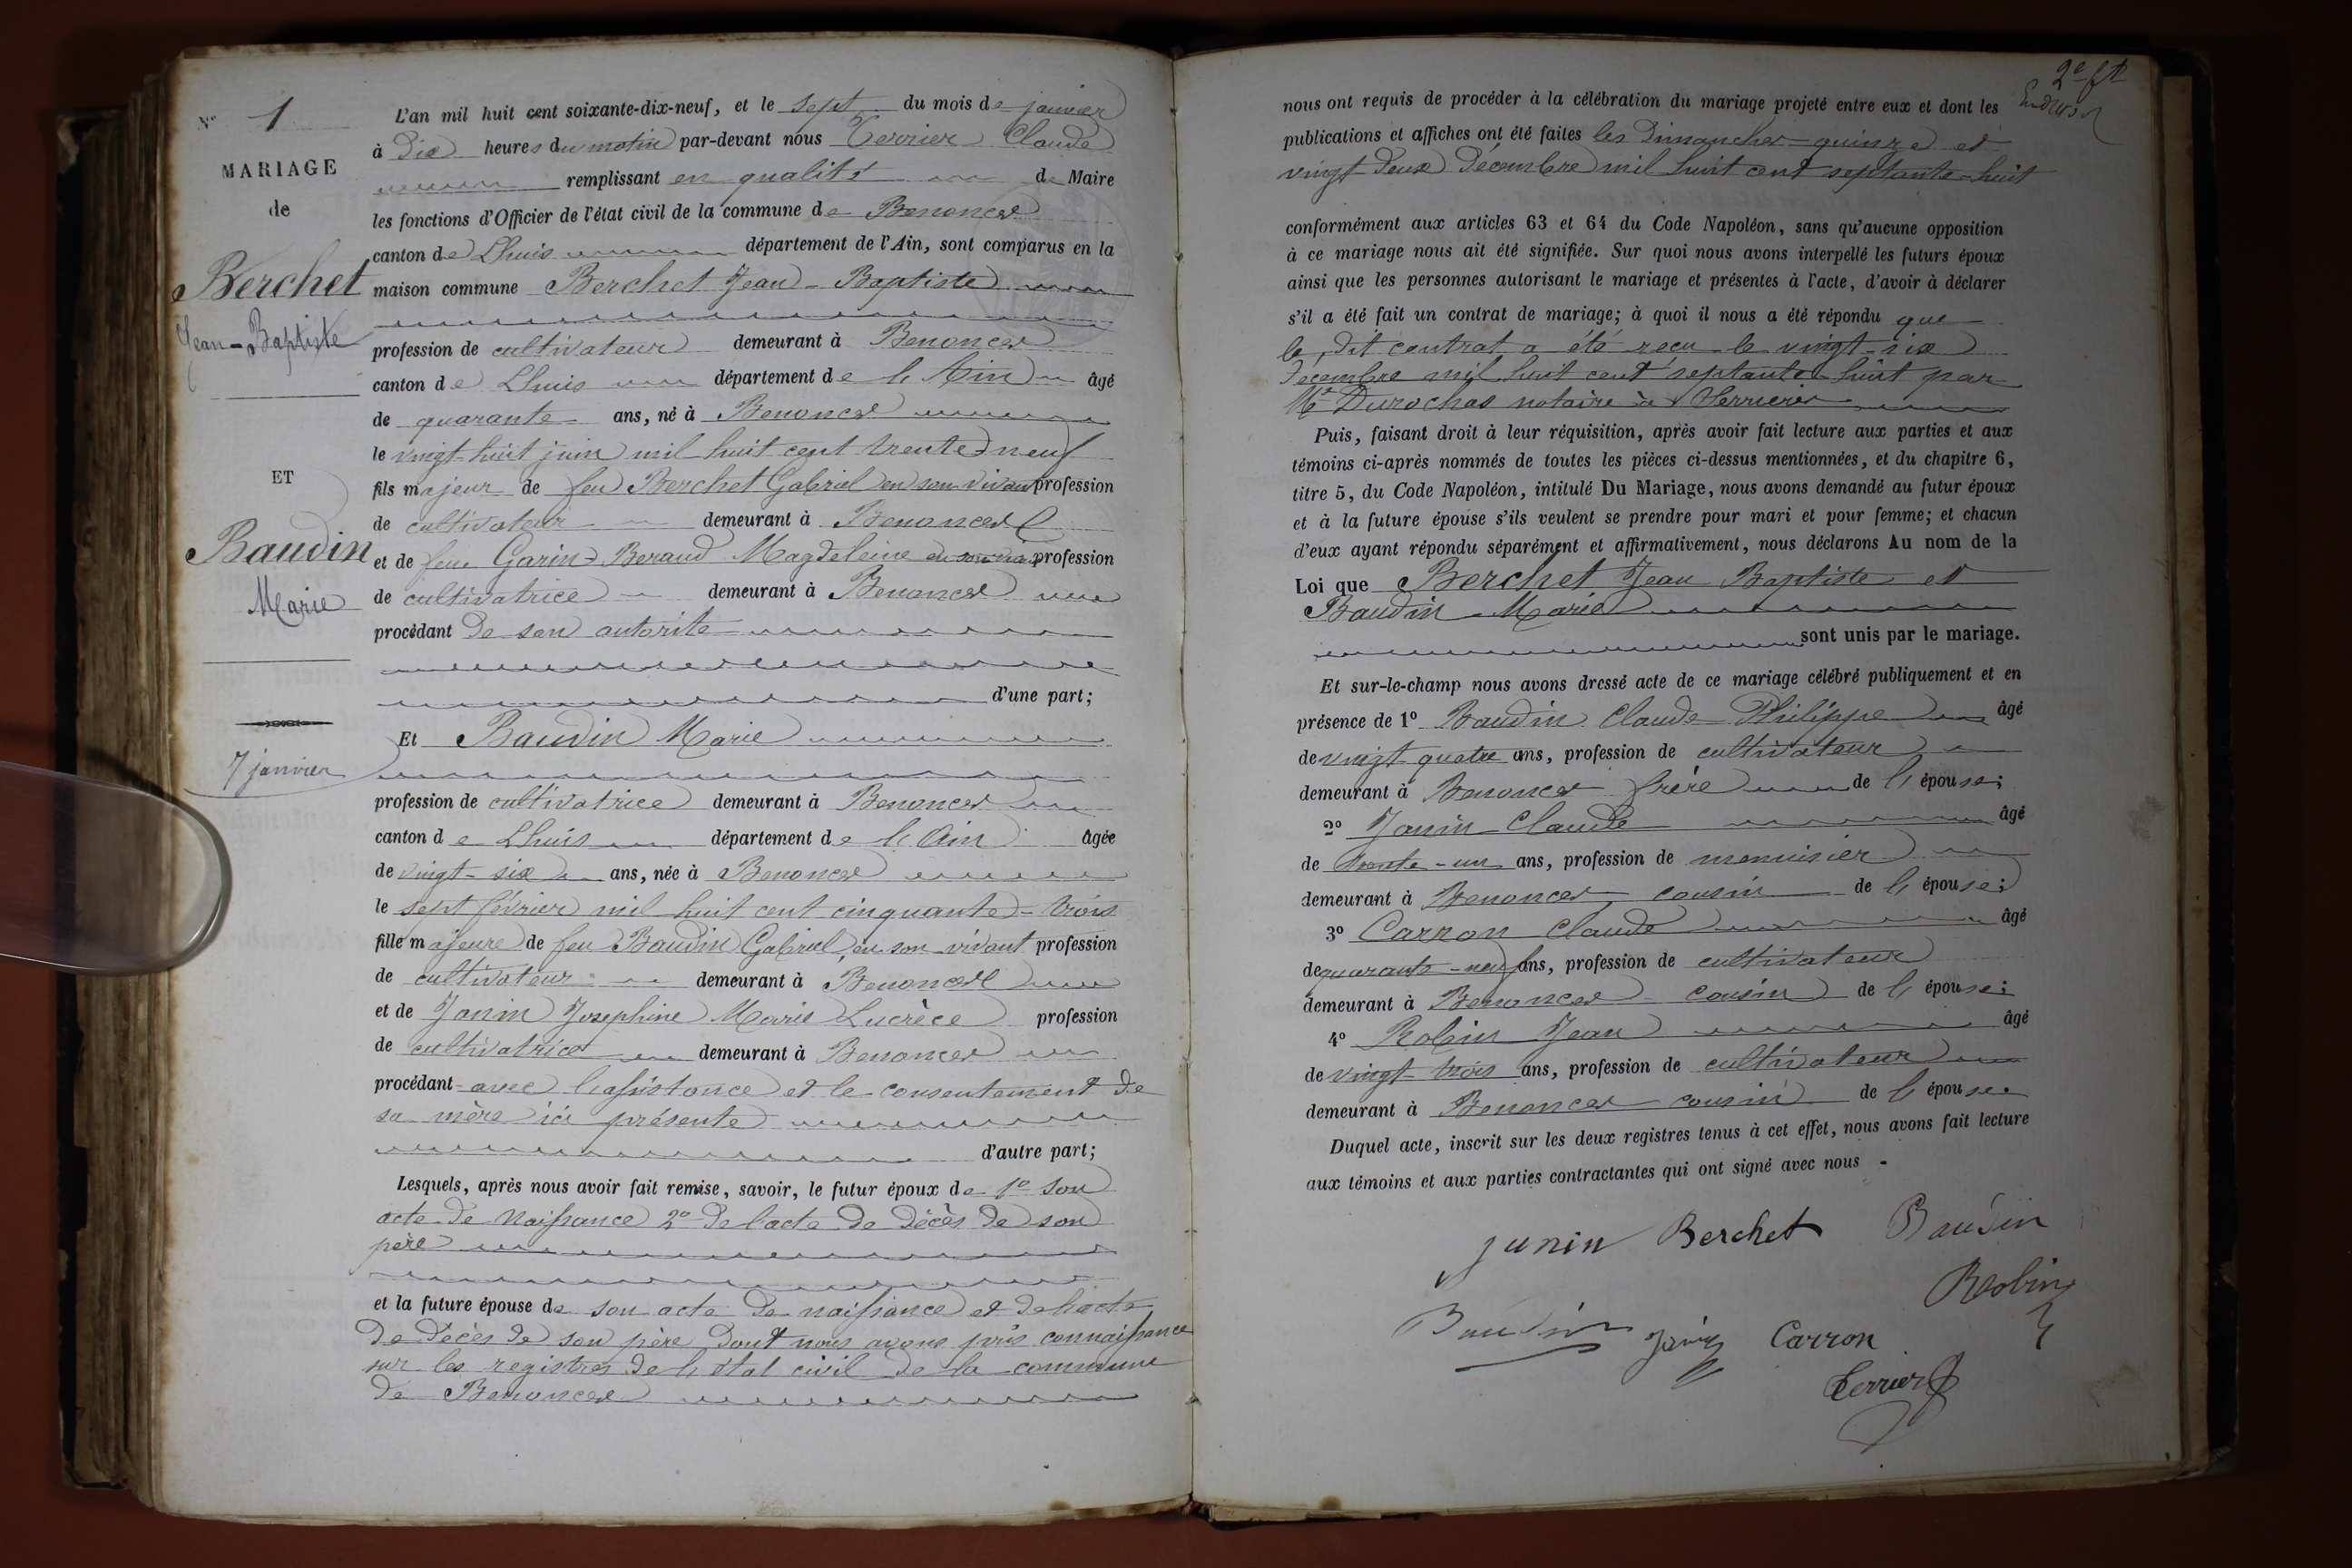 N° 1
MARIAGE
de
Berchet
Jean-Baptiste
ET
Baudin
Marie
7 janvier
L'an mil huit cent soixante-dix-neuf, et le sept du mois de janvier
à dix heures du matin par-devant nous Terrier Claude
remplissant en qualité de Maire
les fonctions d'Officier de l'état civil de la commune de Benonces
canton de Lhuis département de l'Ain, sont comparus en la
maison commune Berchet Jean-Baptiste
profession de cultivateur demeurant à Benonces
canton de Lhuis département de l'Ain âgé
de quarante ans, né à Benonces
le vingt-huit juin mil huit cent trente-neuf
fils majeur de feu Berchet Gabriel en son vivant profession
de cultivateur demeurant à Benonces
et de feue Garin-Beraud Magdeleine en son vivant profession
de cultivatrice demeurant à Benonces
procédant de son autorité
d'une part;
Et Baudin Marie
profession de cultivatrice demeurant à Benonces
canton de Lhuis département de l'Ain âgée
de vingt-six ans, née à Benonces
le sept février mil huit cent cinquante-trois
fille majeure de feu Baudin Gabriel, en son vivant profession
de cultivateur demeurant à Benonces
et de Janin Josephine Marie Lucrèce profession
de cultivatrice demeurant à Benonces
procédant avec l'assistance et le consentement de
sa mère ici présente
d'autre part;
Lesquels, après nous avoir fait remise, savoir, le futur époux de 1° son
acte de naissance 2° de l'acte de décès de son
père
et la future épouse de son acte de naissance et de l'acte
de décès de son père dont nous avons pris connaissance
sur les registres de l'état civil de la commune
de Benonces
2e ft
nous ont requis de procéder à la célébration du mariage projeté entre eux et dont les
publications et affiches ont été faites les Dimanches quinze et
vingt-deux Décembre mil huit cent septante-huit
conformément aux articles 63 et 64 du Code Napoléon, sans qu'aucune opposition
à ce mariage nous ait été signifiée. Sur quoi nous avons interpellé les futurs époux
ainsi que les personnes autorisant le mariage et présentes à l'acte, d'avoir à déclarer
s'il a été fait un contrat de mariage; à quoi il nous a été répondu que
le dit contrat a été reçu le vingt-six
décembre mil huit cent septante-huit par
Me Durochas notaire à Serrières
Puis, faisant droit à leur réquisition, après avoir fait lecture aux parties et aux
témoins ci-après nommés de toutes les pièces ci-dessus mentionnées, et du chapitre 6,
titre 5, du Code Napoléon, intitulé Du Mariage, nous avons demandé au futur époux
et à la future épouse s'ils veulent se prendre pour mari et pour femme; et chacun
d'eux ayant répondu séparément et affirmativement, nous déclarons Au nom de la
Loi que Berchet Jean Baptiste et
Baudin Marie
sont unis par le mariage.
Et sur-le-champ nous avons dressé acte de ce mariage célébré publiquement et en
présence de 1° Baudin Claude Philippe âgé
de vingt quatre ans, profession de cultivateur
demeurant à Benonces frère de l'épouse;
2° Janin Claude âgé
de trente-un ans, profession de menuisier
demeurant à Benonces cousin de l'épouse;
3° Carron Claude âgé
de quarante-neuf ans, profession de cultivateur
demeurant à Benonces cousin de l'épouse;
4° Robin Jean âgé
de vingt-trois ans, profession de cultivateur
demeurant à Benonces cousin de l'épouse
Duquel acte, inscrit sur les deux registres tenus à cet effet, nous avons fait lecture
aux témoins et aux parties contractantes qui ont signé avec nous
Junin Berchet Baudin
Robin
Baudin Janin Carron
Terrier